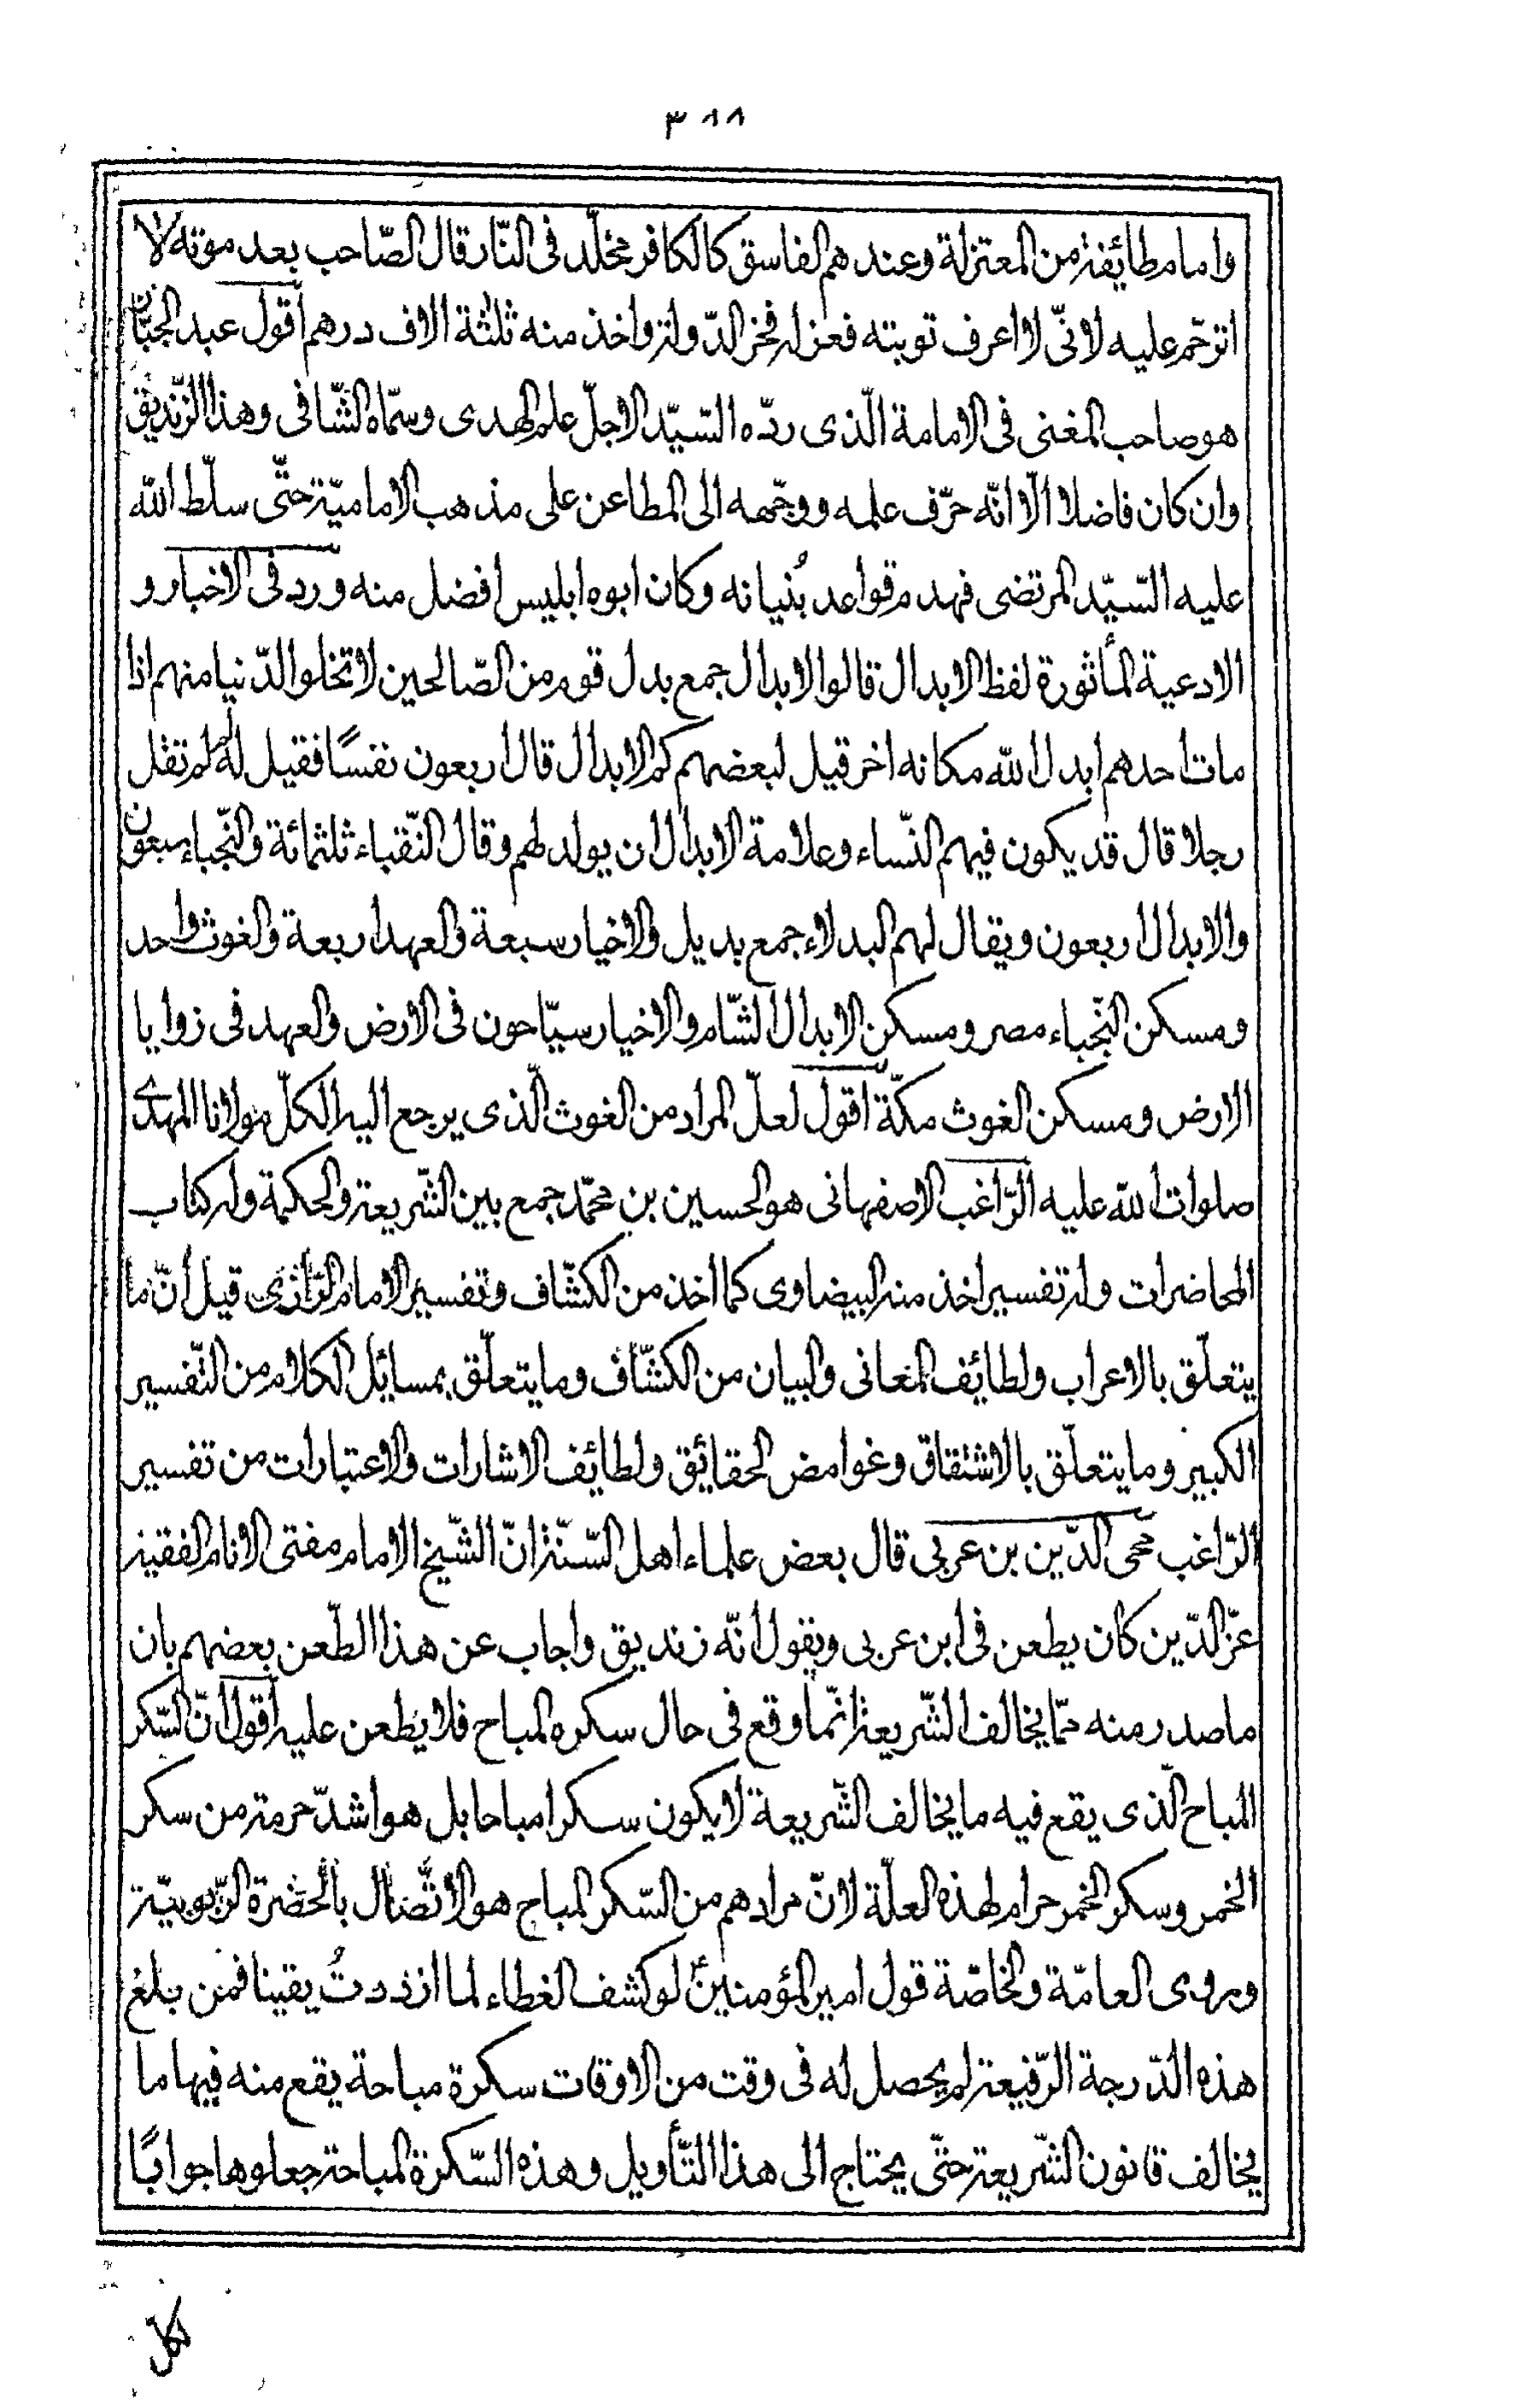 ٣٨٨
وامام طائفة من المعتزلة وعندهم الفاسق كالكافر مخلّد فى النّار قال الصّاحب بعد موته لا
اترحّم عليه لانّى لا اعرف توبته فعزله فخر الدّولة واخذ منه ثلثة الاف درهم اقول عبد الجبّار
هو صاحب المغنى فى الامامة الّذى ردّه السّيّد الاجلّ علم الهدى وسمّاه الشّافى وهذا الزّنديق
وان كان فاضلا الّا انّه حرّف علمه ووجّهه الى المطاعن على مذهب الاماميّة حتّى سلّط الله
عليه السّيّد المرتضى فهدم قواعد بُنيانه وكان ابوه ابليس افضل منه ورد فى الاخبار و
الادعية المأثورة لفظ الابدال قالوا الابدال جمع بدل قوم من الصّالحين لا تخلو الدّنيا منهم اذا
مات احدهم ابدل الله مكانه اخر قيل لبعضهم كم الابدال قال اربعون نفسًا فقيل له لم لم تقل
رجلا قال قد يكون فيهم النّساء وعلامة الابدال ان يولد لهم وقال النّقباء ثلثمائة والنّجباء سبعون
والابدال اربعون ويقال لهم البدلاء جمع بديل والاخيار سبعة والعهد اربعة والغوث واحد
ومسكن النّجباء مصر ومسكن الابدال الشّام والاخيار سيّاحون فى الارض والعهد فى زوايا
الارض ومسكن الغوث مكّة اقول لعلّ المراد من الغوث الّذى يرجع اليه الكلّ مولانا المهدى
صلوات الله عليه الرّاغب الاصفهانى هو الحسين بن محمّد جمع بين الشّريعة والحكمة وله كتاب
المحاضرات وله تفسير اخذ منه البيضاوى كما اخذ من الكشّاف وتفسير الامام الرّازى قيل انّ ما
يتعلّق بالاعراب ولطائف المعانى والبيان من الكشّاف وما يتعلّق بمسائل الكلام من التّفسير
الكبير وما يتعلّق بالاشتقاق وغوامض الحقائق ولطائف الاشارات والاعتبارات من تفسير
الرّاغب محى الدّين بن عربى قال بعض علماء اهل السّنّة انّ الشّيخ الامام مفتى الانام الفقيه
عزّ الدّين كان يطعن فى ابن عربى ويقول انّه زنديق واجاب عن هذا الطّعن بعضهم بان
ما صدر منه ممّا يخالف الشّريعة انّما وقع فى حال سكره المباح فلا يُطعن عليه اقول انّ السّكر
المباح الّذى يقع فيه ما يخالف الشّريعة لا يكون سكرا مباحا بل هو اشدّ حرمة من سكر
الخمر وسكر الخمر حرام لهذه العلّة لانّ مرادهم من السّكر المباح هو الاتّصال بالحضرة الرّبوبيّة
وروى العامّة والخاصّة قول امير المؤمنين لو كشف الغطاء لما ازددتُ يقينا فمن بلغ
هذه الدّرجة الرّفيعة لم يحصل له فى وقت من الاوقات سكرة مباحة يقع منه فيها ما
يخالف قانون الشّريعة حتّى يحتاج الى هذا التّأويل وهذه السّكرة المباحة جعلوها جوابًا